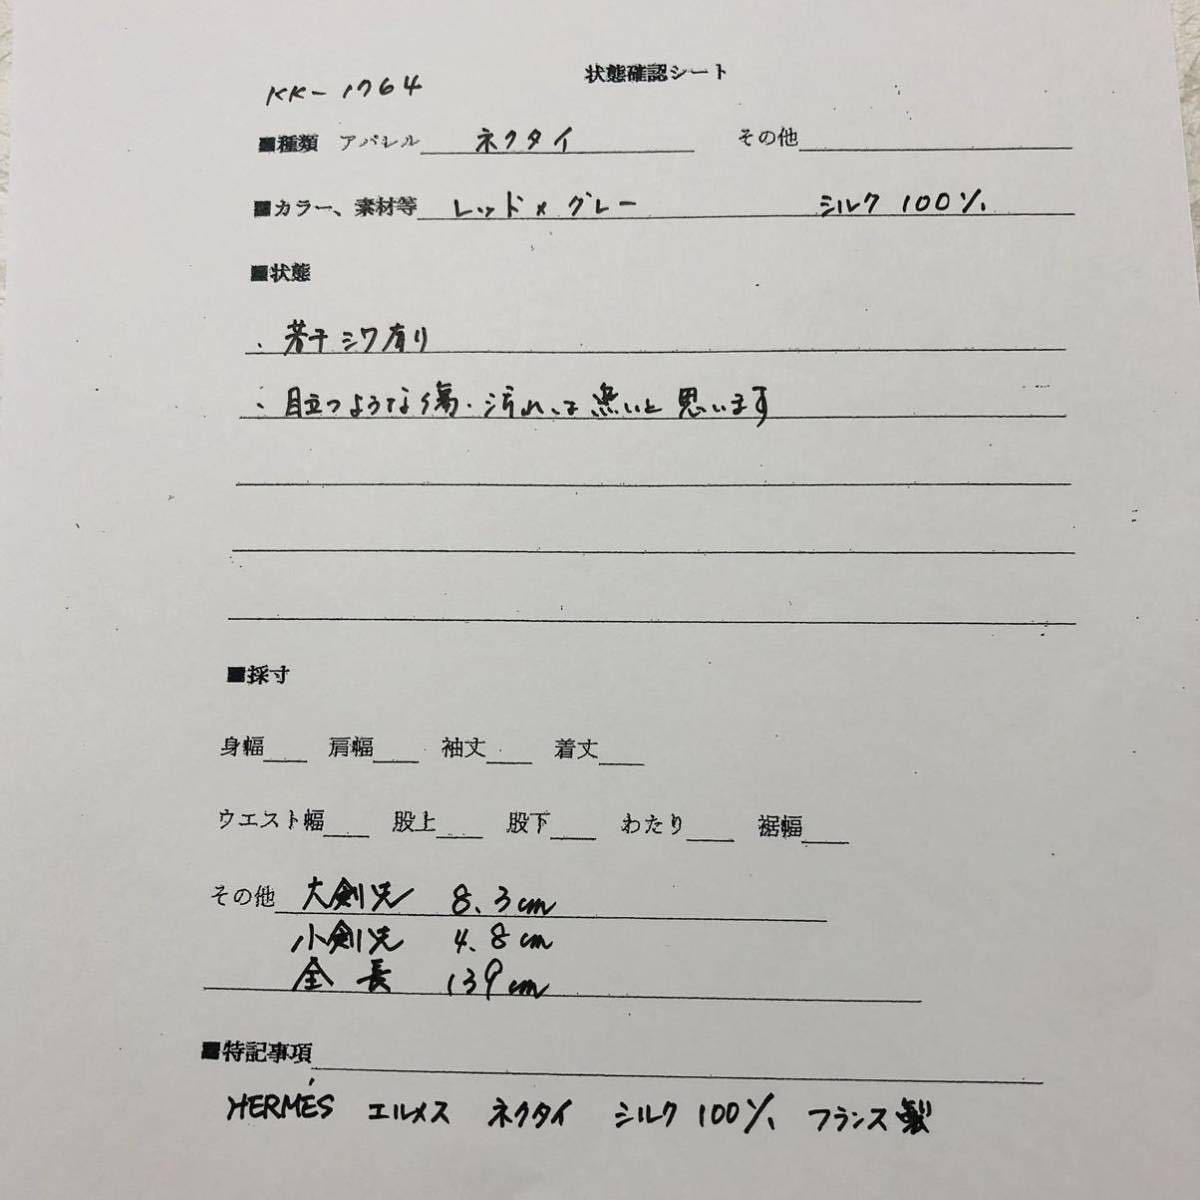 状態確認シート
KK-1764
■種類 アパレル ネクタイ その他
■カラー、素材等 レッド×グレー シルク 100%
■状態
・若干シワ有り
・目立つような傷・汚れは無いと思います
■採寸
身幅 肩幅 袖丈 着丈
ウエスト幅 股上 股下 わたり 裾幅
その他 大剣先 8.3cm
小剣先 4.8cm
全長 139cm
■特記事項
HERMÉS エルメス ネクタイ シルク 100% フランス製